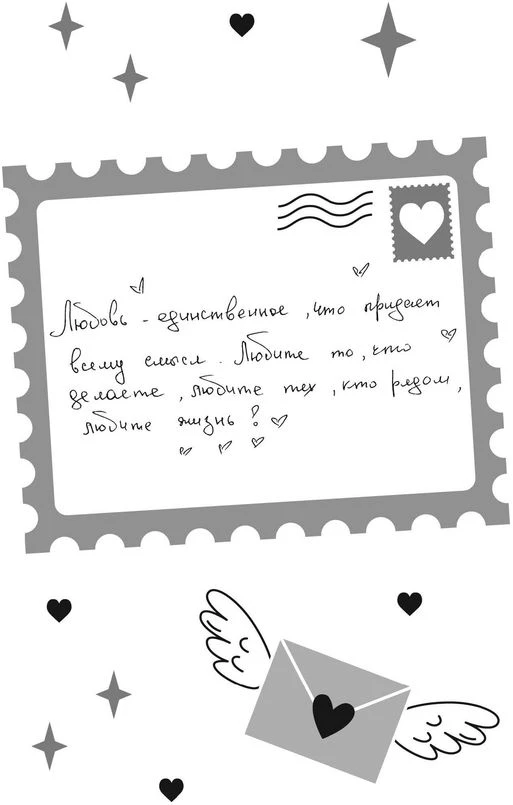 Любовь - единственное , что придает
всему смысл . Любите то , что
делаете , любите тех , кто рядом ,
любите жизнь !